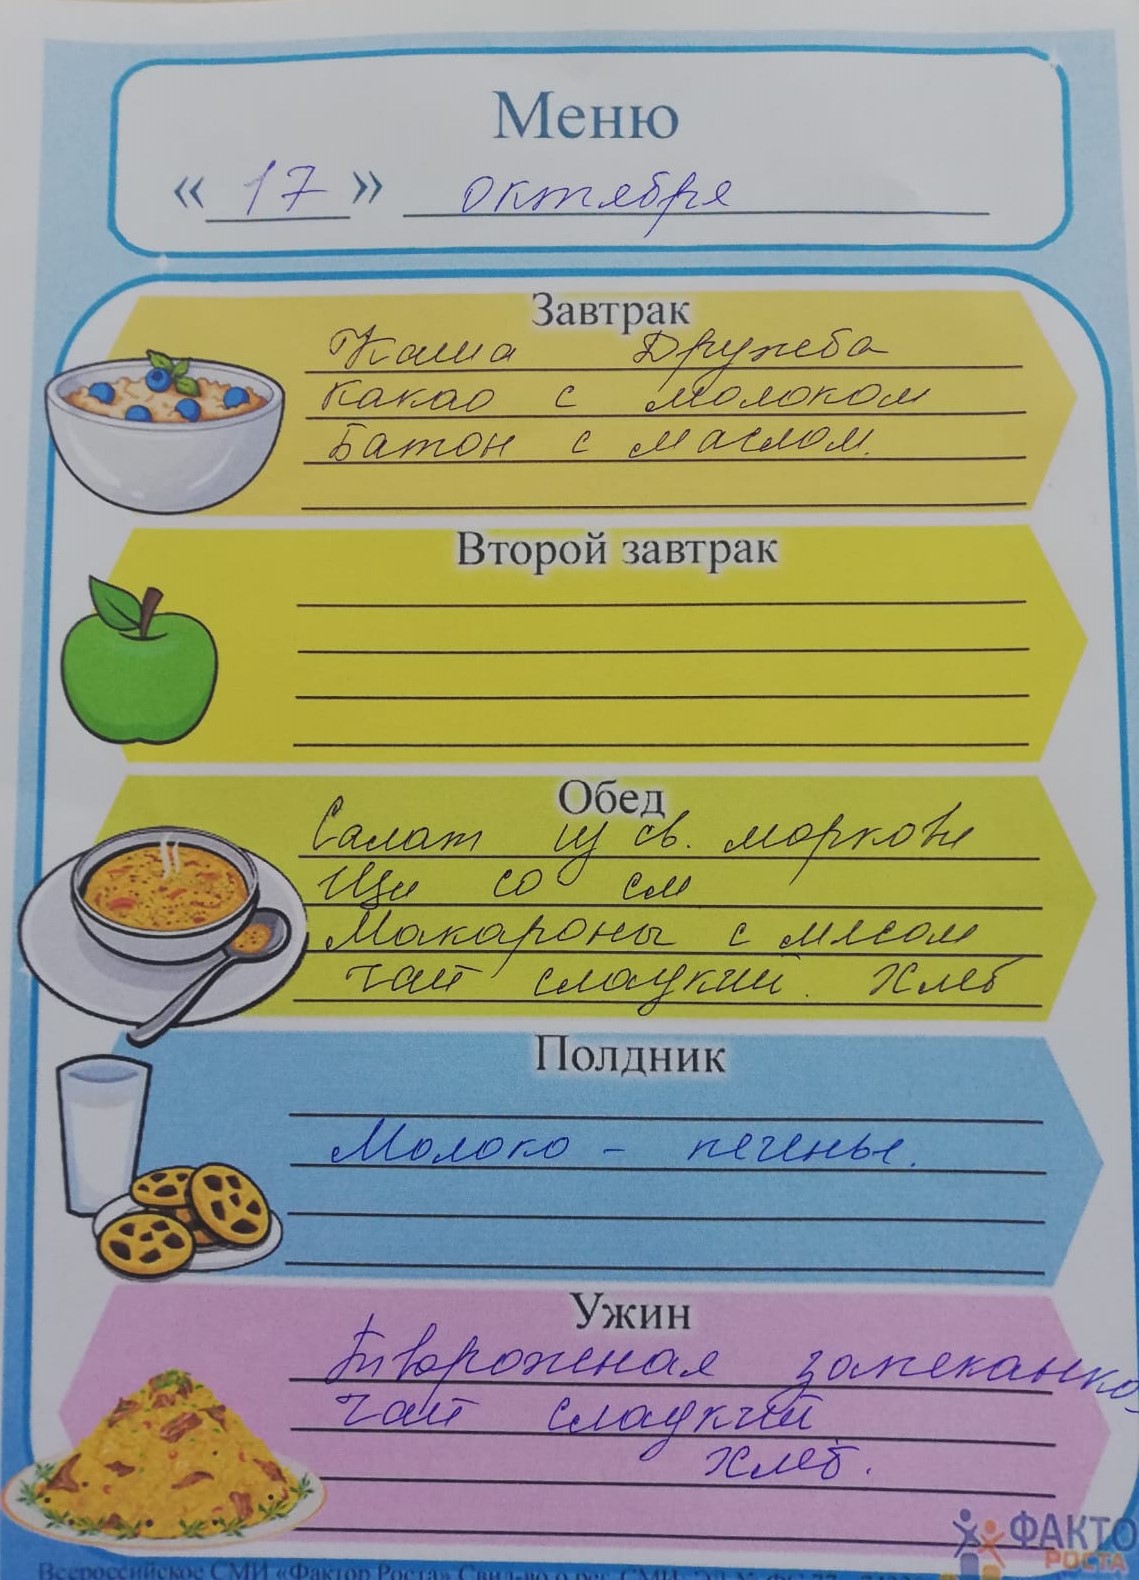 Меню
« 17 » октября
Завтрак
Каша Дружба
Какао с молоком
Батон с маслом.
Второй завтрак
Обед
Салат из св. моркови
Щи со см
Макароны с мясом
Чай сладкий. Хлеб
Полдник
Молоко - печенье.
Ужин
Творожная запеканка
Чай сладкий
Хлеб.
ФАКТО
РОСТА
Всероссийское СМИ «Фактор Роста»